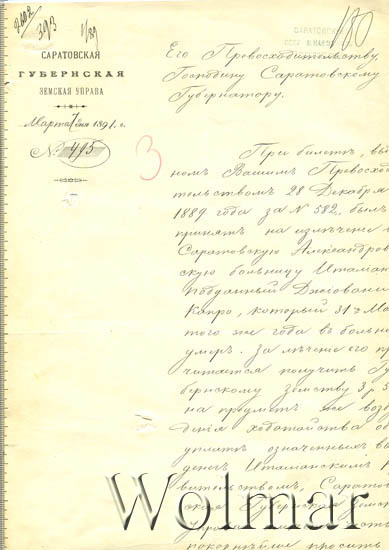 2602
393
1/89
180
САРАТОВСКАЯ
ГУБЕРНСКАЯ
ЗЕМСКАЯ УПРАВА
Марта 7 дня 1891 г.
№ 495
3
САРАТОВСКИЙ
Его Превосходительству,
Господину Саратовскому
Губернатору.
При билетѣ, вы
номъ Вашимъ Превосход
тельствомъ 28 Декабря
1889 года за № 582, былъ
принятъ на излѣченіе
Саратовскую Александров
скую больницу Итальян
подданный Джіовани
Капро, который 31 Ма
того же года въ больн
умеръ. За лѣченіе его пр
читается получить Гу
бернскому земству 3 р. 3
на предметъ же возв
денія ходатайства об
уплатѣ означенныхъ вы
денегъ Итальянскимъ
вительствомъ, Саратов
ская Губернская Земск
Управа
покорнѣйше просить
Wolmar